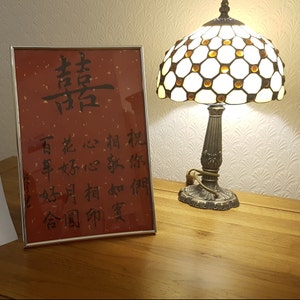 囍
祝你們
相敬如賓
心心相印
花好月圓
百年好合